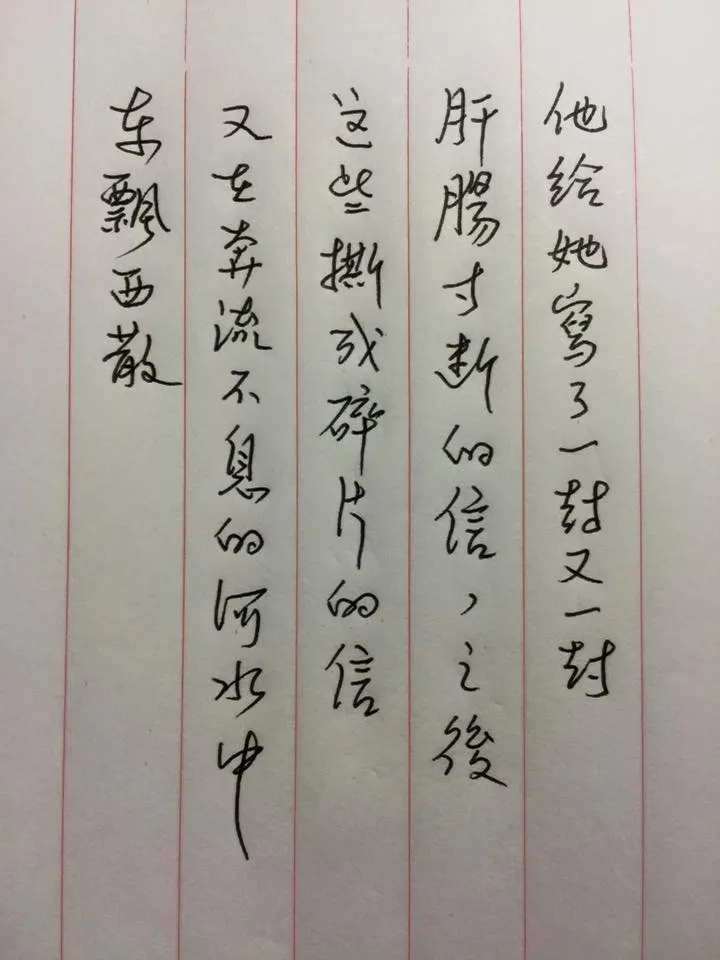 他给她寫了一封又一封
肝腸寸断的信，之後
这些撕成碎片的信
又在奔流不息的河水中
东飄西散